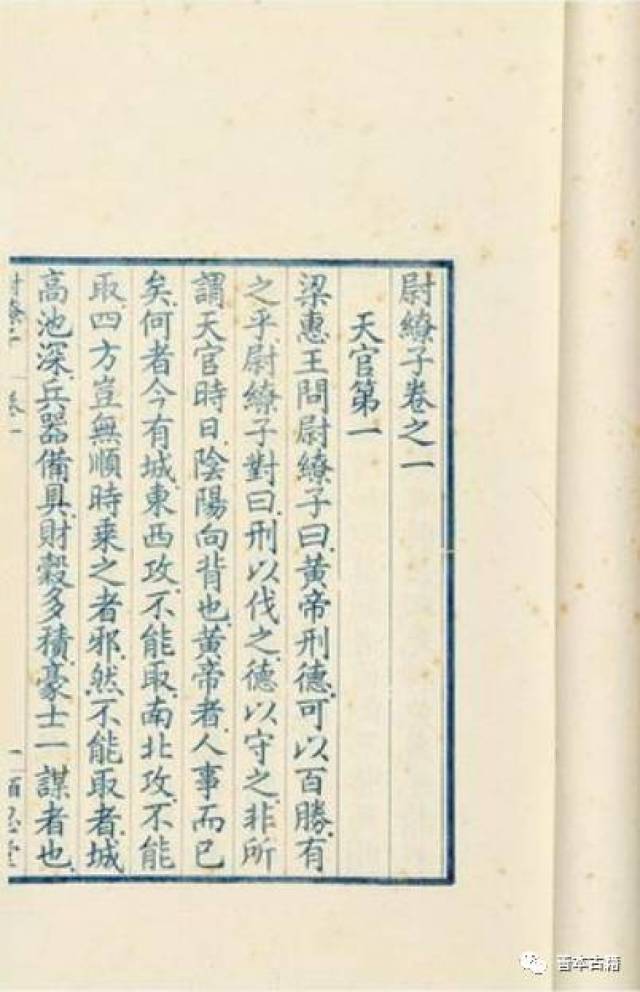 尉繚子卷之一
天官第一
梁惠王問尉繚子曰黃帝刑德可以百勝有
之乎尉繚子對曰刑以伐之德以守之非所
謂天官時日陰陽向背也黃帝者人事而已
矣何者今有城東西攻不能取南北攻不能
取四方豈無順時乘之者邪然不能取者城
高池深兵器備具財穀多積豪士一謀者也
尉繚子 卷一
善本古籍